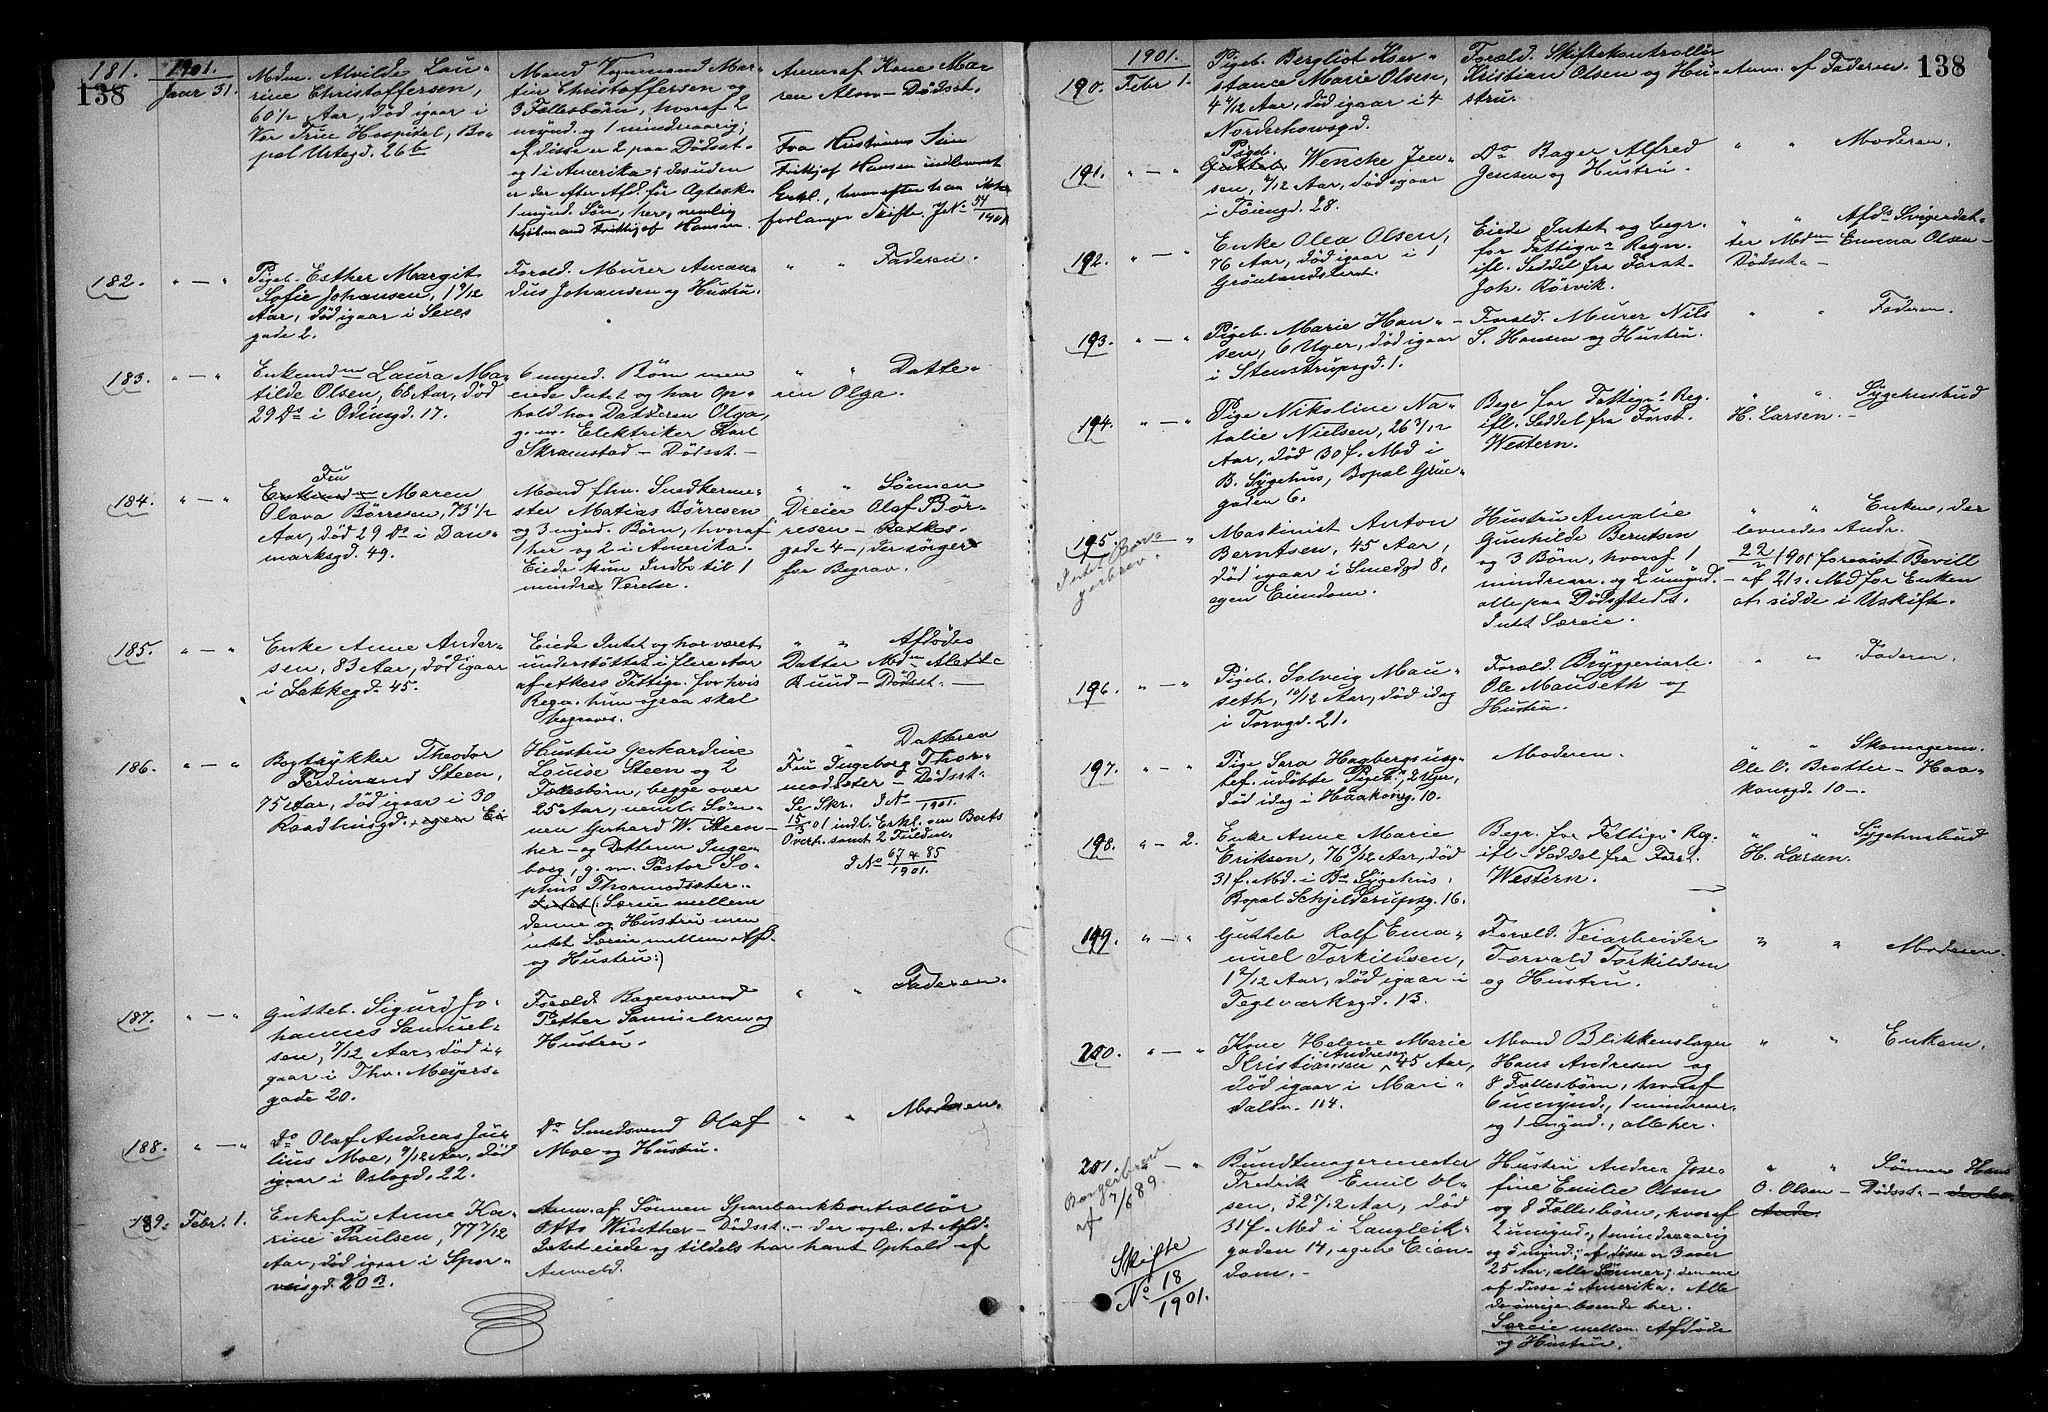 138
181.
1901.
Janr 31.
Mdm. Alvilde Lau-
rine Christoffersen,
60 1/2 Aar, død igaar i
Vor Frue Hospital, Bo-
pæl Urtegd. 26b
Mand Vognmand Mar-
tin Christoffersen og
3 Fællesbørn, hvoraf 2
umynd. og 1 mindreaarig;
af disse er 2 paa Dødsst.
og 1 i Amerika; desuden
er der efter Afd. før Ægtesk.
1 mynd. Søn, her, nemlig
Kjøbmand Frittjof Hansen.
Anm. af Kone Ma-
ren Alm - Dødsst.
Fra Hustruens Søn
Frittjof Hansen indleveret
Erkl., hvorefter han ikke
forlanger Skifte. J No 54/1901
182.
" — "
Pigeb. Esther Margit
Sofie Johansen, 1 9/12
Aar, død igaar i Sexes
gade 2.
Foræld. Murer Aman-
dus Johansen og Hustru.
" " Faderen.
183.
" — "
Enkemdm Laura Ma-
tilde Olsen, 68 Aar, død
29 Ds i Odinsgd. 17.
6 mynd. Børn men
eiede Intet og har Op-
hold hos Datteren Olga,
g. m. Elektriker Karl
Skramstad — Dødsst. —
" " Datte-
ren Olga.
184.
" — "
Fru
Enkemd Maren
Olava Børresen, 73 1/2
Aar, død 29 Ds i Dan-
marksgd. 49.
Mand fhv. Snedkerme-
ster Matias Børresen
og 3 mynd. Børn, hvoraf
1 her og 2 i Amerika.
Eiede kun Indbo til
mindre Værdi.
" " Sønnen
Dreier Olaf Bør-
resen — Ratkes-
gade 4 —, der sørger
for Begrav.
185.
" — "
Enke Anne Ander-
sen, 83 Aar, død igaar
i Lakkegd. 45.
Eiede Intet og har været
understøttet i flere Aar
af Akers Fattigv. for hvis
Regn. hun ogsaa skal
begraves.
" " Afdødes
Datter Mdm
Ruud — Dødsst. —
186.
" — "
Bogtrykker Theodor
Ferdinand Steen,
75 Aar, død igaar i 30
Raadhusgd. egen Ei
Hustru Gerhardine
Louise Steen og 2
Fællesbørn, begge over
25 Aar, neml. Søn-
nen Gerhard W. Steen
her — og Datteren Inge-
borg, g. m. Pastor So-
phus Thormodsæter.
Intet (: Særeie mellem
denne og Hustru men
intet Særeie mellem Afd.
og Hustru :)
" " Datteren
Fru Ingeborg Thor-
modsæter — Dødsst.
Se Skr. J No /1901.
15/3 01 indl. Erkl. om Boets
Overt. samt 2 Fuldm.
J No 67 & 85/1901.
187.
" — "
Gutteb. Sigurd Jo-
hannes Samuel-
sen, 7/12 Aar, død i-
gaar i Thv. Meyers-
gade 20.
Foræld. Bagersvend
Petter Samuelsen og
Hustru.
" " Faderen.
188.
" — "
Do Olaf Andreas Jul-
lius Moe, 9/12 Aar, død
igaar i Oslogd. 22.
Do Smedsvend Olaf
Moe og Hustru.
" " Moderen.
189.
Febr. 1.
Enkefru Anne Ka-
rine Paulsen, 77 7/12
Aar, død igaar i Spor-
veisgd. 20B.
Anm. af Sønnen Sparebankkontrollør
Otto Winther — Dødsst. — der opl. at Afd.
Intet eiede og tildels har havt Ophold af
Anmeld.
138
1901.
190.
Febr 1.
Pigeb. Bergliot Kon-
stance Marie Olsen,
4 4/12 Aar, død igaar i 4
Norderhovsgd.
Foræld. Skiftekontrollør
Kristian Olsen og Hu-
stru.
Anm. af Faderen.
191.
" — "
Pigeb.
Gutteb. Wencke Jen-
sen, /12 Aar, død igaar
i Tøiengd. 28.
Do Bager Alfred
Jensen og Hustru.
" " Moderen.
192.
" — "
Enke Olea Olsen,
76 Aar, død igaar i 1
Grønlandsleret.
Eiede Intet og begr.
for Fattigvs Regn.
ifl. Seddel fra Forst.
Joh. Rørvik.
" " Afds Svigerdat-
ter Mdm Emma Olsen -
Dødsst. -
193.
" — "
Pigeb. Marie Han-
sen, 6 Uger, død igaar
i Stenstrupsgd. 1.
Foræld. Murer Nils
S. Hansen og Hustru.
" " Faderen.
194.
" — "
Pige Nikoline Na-
talie Nielsen, 26 3/12
Aar, død 30 f. Md i
B. Sygehus, Bopæl Grue-
gaden 6.
Begr for Fattigvs Reg.
ifl. Seddel fra Forst.
Western.
" " Sygehusbud
H. Larsen. -
195.
Intet Bor-
gerbrev.
"
Maskinist Anton
Berntsen, 45 Aar,
død igaar i Smedgd 8,
egen Eiendom.
Hustru Amalie
Gunhilde Berntsen
og 3 Børn, hvoraf 1
mindreaar. og 2 umynd.
alle paa Dødsstedet.
Intet Særeie.
" " Enken, der
levnedes Andr.
22/2 1901 forevist Bevill.
af 21 s. Md for Enken
at sidde i Uskifte.
196.
" — "
Pigeb. Solveig Mau-
seth, 10/12 Aar, død idag
i Torvgd. 21.
Foræld. Bryggeriarb.
Ole Mauseth og
Hustru.
" " Faderen.
197.
" — "
Pige Sara Hagbergs uæg-
tef. udøbte Pigeb., 2 Uger,
død idag i Haakonsg. 10.
Moderen.
" " Skomagerm.
Ole O. Bratter — Haa-
konsgd. 10 —.
198.
" — 2.
Enke Anne Marie
Eriksen, 76 3/12 Aar, død
31 f. Md. i Bs Sygehus,
Bopæl Schjelderupsg. 16.
Begr. for Fattigvs Reg.
ifl. Seddel fra Forst.
Western.
" " Sygehusbud
H. Larsen.
199.
" — "
Gutteb Rolf Ema-
nuel Torkildsen,
1 2/12 Aar, død igaar i
Teglværksgd. 13.
Foræld. Veiarbeider
Torvald Torkildsen
og Hustru.
" " Moderen.
200.
" — "
Kone Helene Marie
Andresen
Kristiansen, 45 Aar,
død igaar i Mari-
dalsv. 114.
Mand Blikkenslager
Hans Andresen og
8 Fællesbørn, hvoraf
6 umynd., 1 mindreaar.
og 1 mynd., alle her.
" " Enkem.
201.
Borgerbrev
af 7/6 89.
Skifte
No 18/1901.
" — "
Bundtmagermester
Fredrik Emil Ol-
sen, 52 7/12 Aar, død
31 f. Md i Langleik-
gaden 14, egen Eien-
dom. -
Hustru Andrea Jose-
fine Emilie Olsen
og 8 Fællesbørn, hvoraf
2 umynd., 1 mindreaarig
og 5 mynd.; af disse er 3 over
25 Aar, alle Sønner; den ene
af disse i Amerika. Alle
de øvrige boende her.
Særeie mellem Afdøde
og Hustru.
" " Sønnen Hans
O. Olsen — Dødsst. —
Andr.